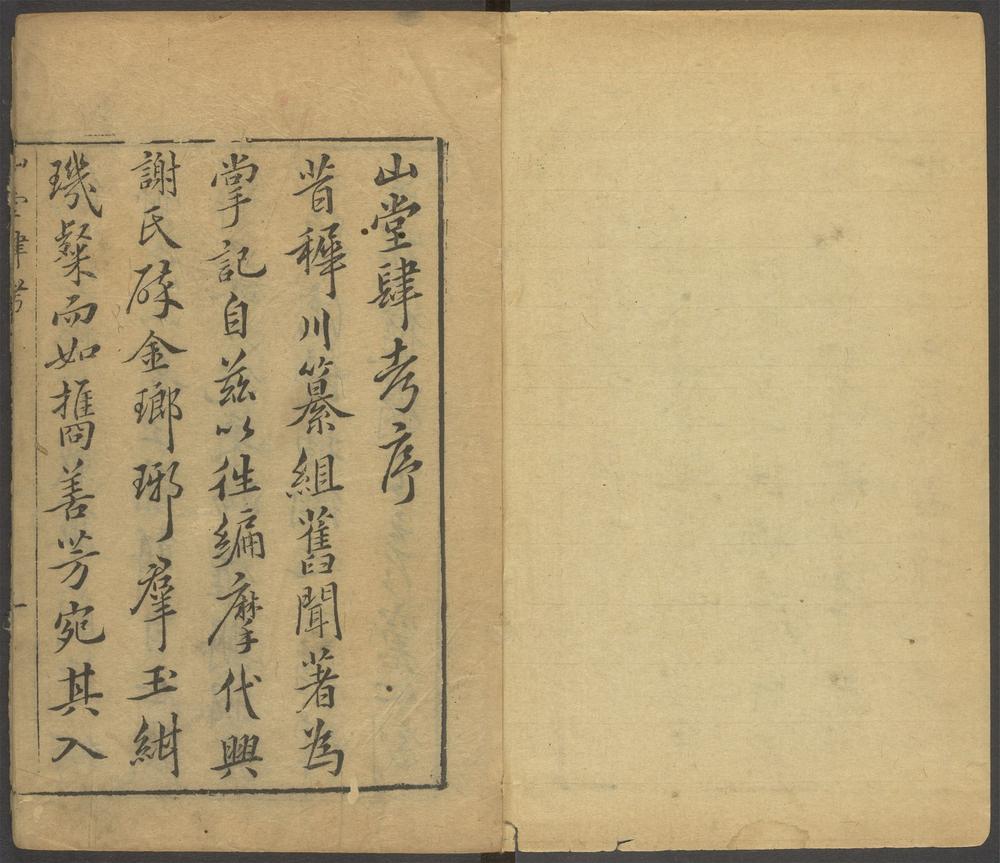 山堂肆考序
昔稺川纂組舊聞著為
掌記自兹以徃編摩代興
謝氏碎金瑯琊羣玉紺
璣粲而如攜善芳宛其入
山堂肆考
一